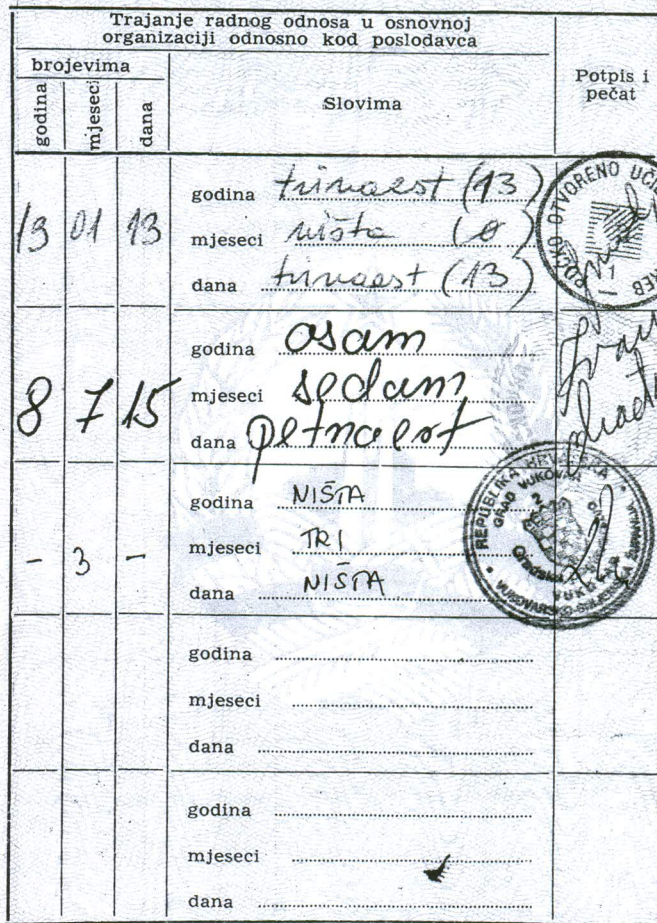 Trajanje radnog odnosa u osnovnoj
organizaciji odnosno kod poslodavca
brojevima
godina
mjeseci
dana
Slovima
Potpis i
pečat
13 01 13
godina trinaest (13)
mjeseci ništa (0)
dana trinaest (13)
OTVORENO UČI
8 7 15
godina osam
mjeseci sedam
dana petnaest
- 3 -
godina NIŠTA
mjeseci TRI
dana NIŠTA
REPUBLIKA HRVATSKA
GRAD VUKOVAR
godina
mjeseci
dana
godina
mjeseci
dana